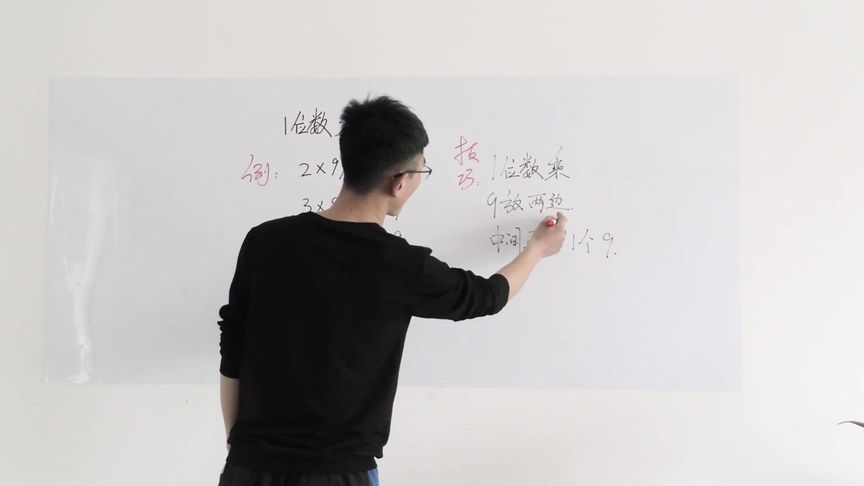 1位数
例: 2×9
3×
技巧: 1位数乘
9放两边
中间 1个9.